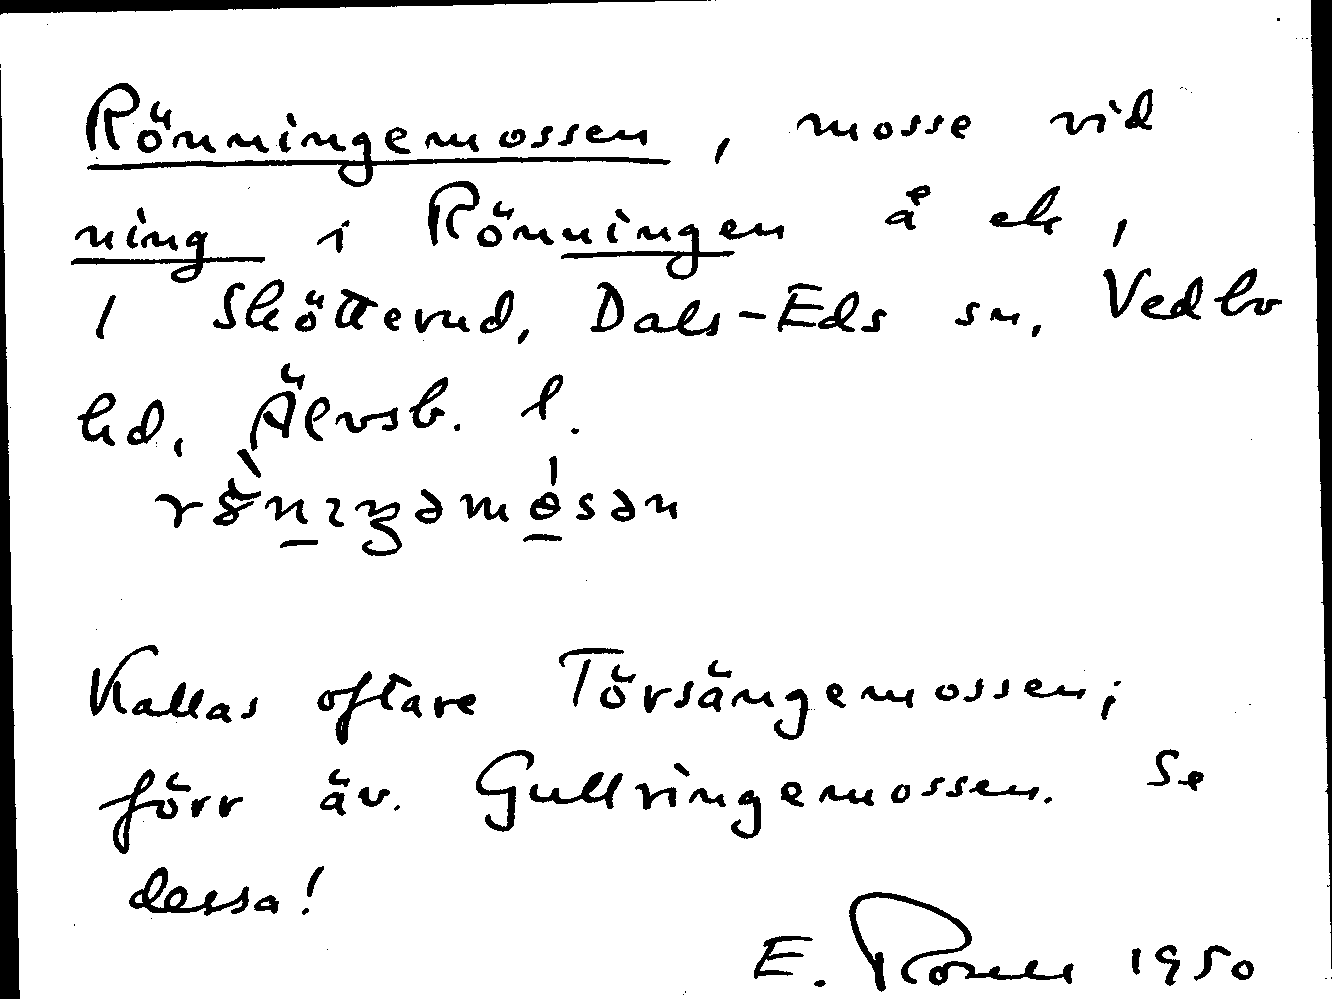 Rönningemossen, mosse vid
ning i Rönningen å ek,
i Skötterud, Dals-Eds sn, Vedbo
hd, Älvsb. l.
Kallas oftare Törsängemossen;
förr äv. Gullringemossen. Se
dessa!
E. Rosell 1950